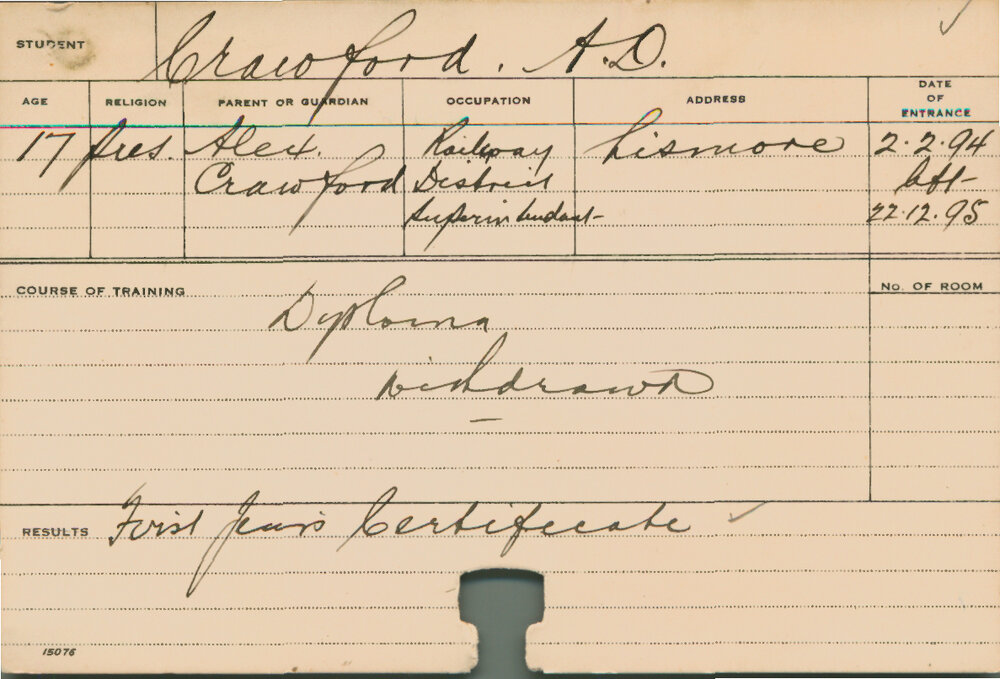 STUDENT Crawford. A.D.
AGE RELIGION PARENT OR GUARDIAN OCCUPATION ADDRESS DATE OF ENTRANCE
17 Pres. Alex. Railway Lismore 2.2.94
Crawford District left
Superintendant 22.12.95
COURSE OF TRAINING No. OF ROOM
Diploma
Withdrawn
RESULTS First Years Certificate ✓
15076